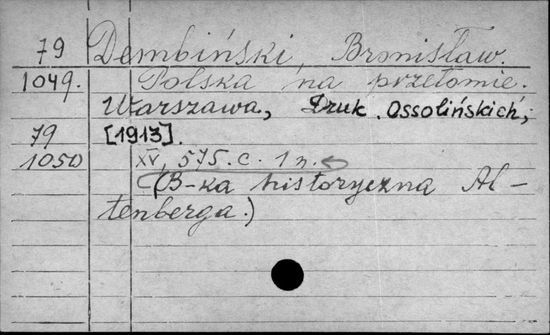 79 Dembiński, Bronisław.
1049. Polska na przełomie.
Warszawa, Druk. Ossolińskich,
79 [1913].
1050 XV, 575.c. 1 n.
(B-ka historyczna Al-
tenberga.)